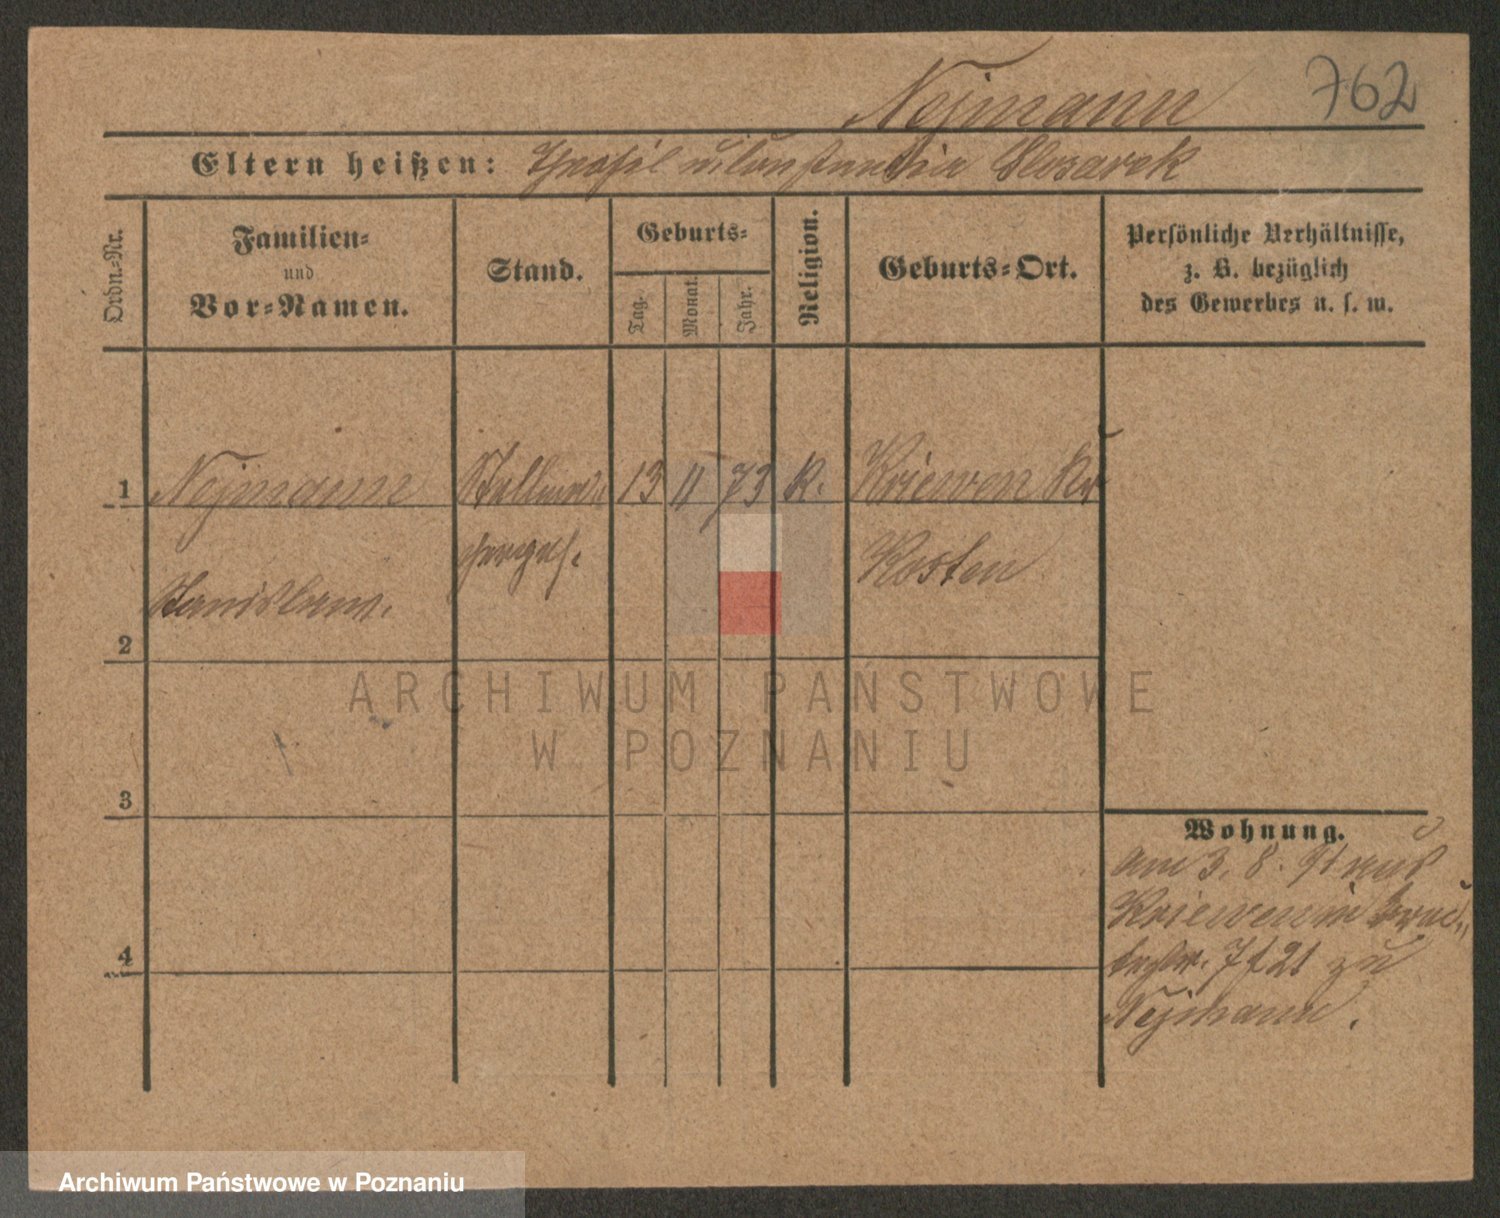 Nojmann 762
Eltern heißen: Theofil u Constantia Slosarek
Ordn.-Nr.
Familien-
und
Vor-Namen.
Stand.
Geburts-
Tag.
Monat.
Jahr.
Religion.
Geburts-Ort.
Persönliche Verhältnisse,
z. B. bezüglich
des Gewerbes u. s. w.
1 Nojmann Stellma- 13 11 73 K. Kriewen Kr
cherges. Kosten
Stanislaus.
2
3
4
Wohnung.
am 3. 8. 91 aus
Kriewen in
21 zu
Nojmann.
ARCHIWUM PAŃSTWOWE
W POZNANIU
Archiwum Państwowe w Poznaniu